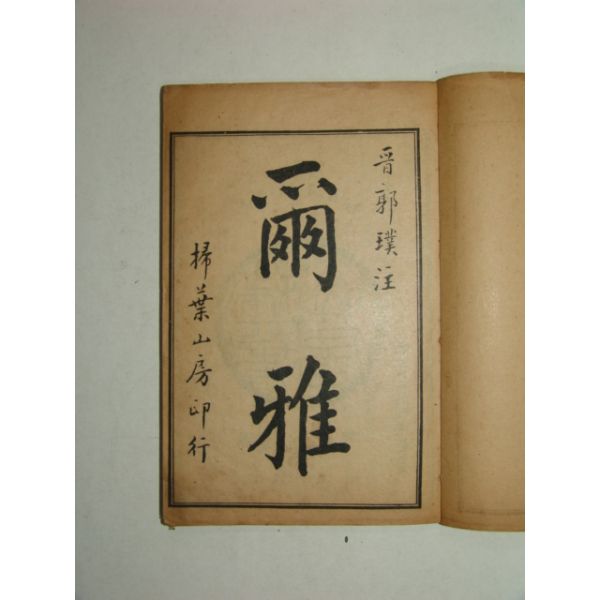 晋郭璞注
爾雅
掃葉山房印行